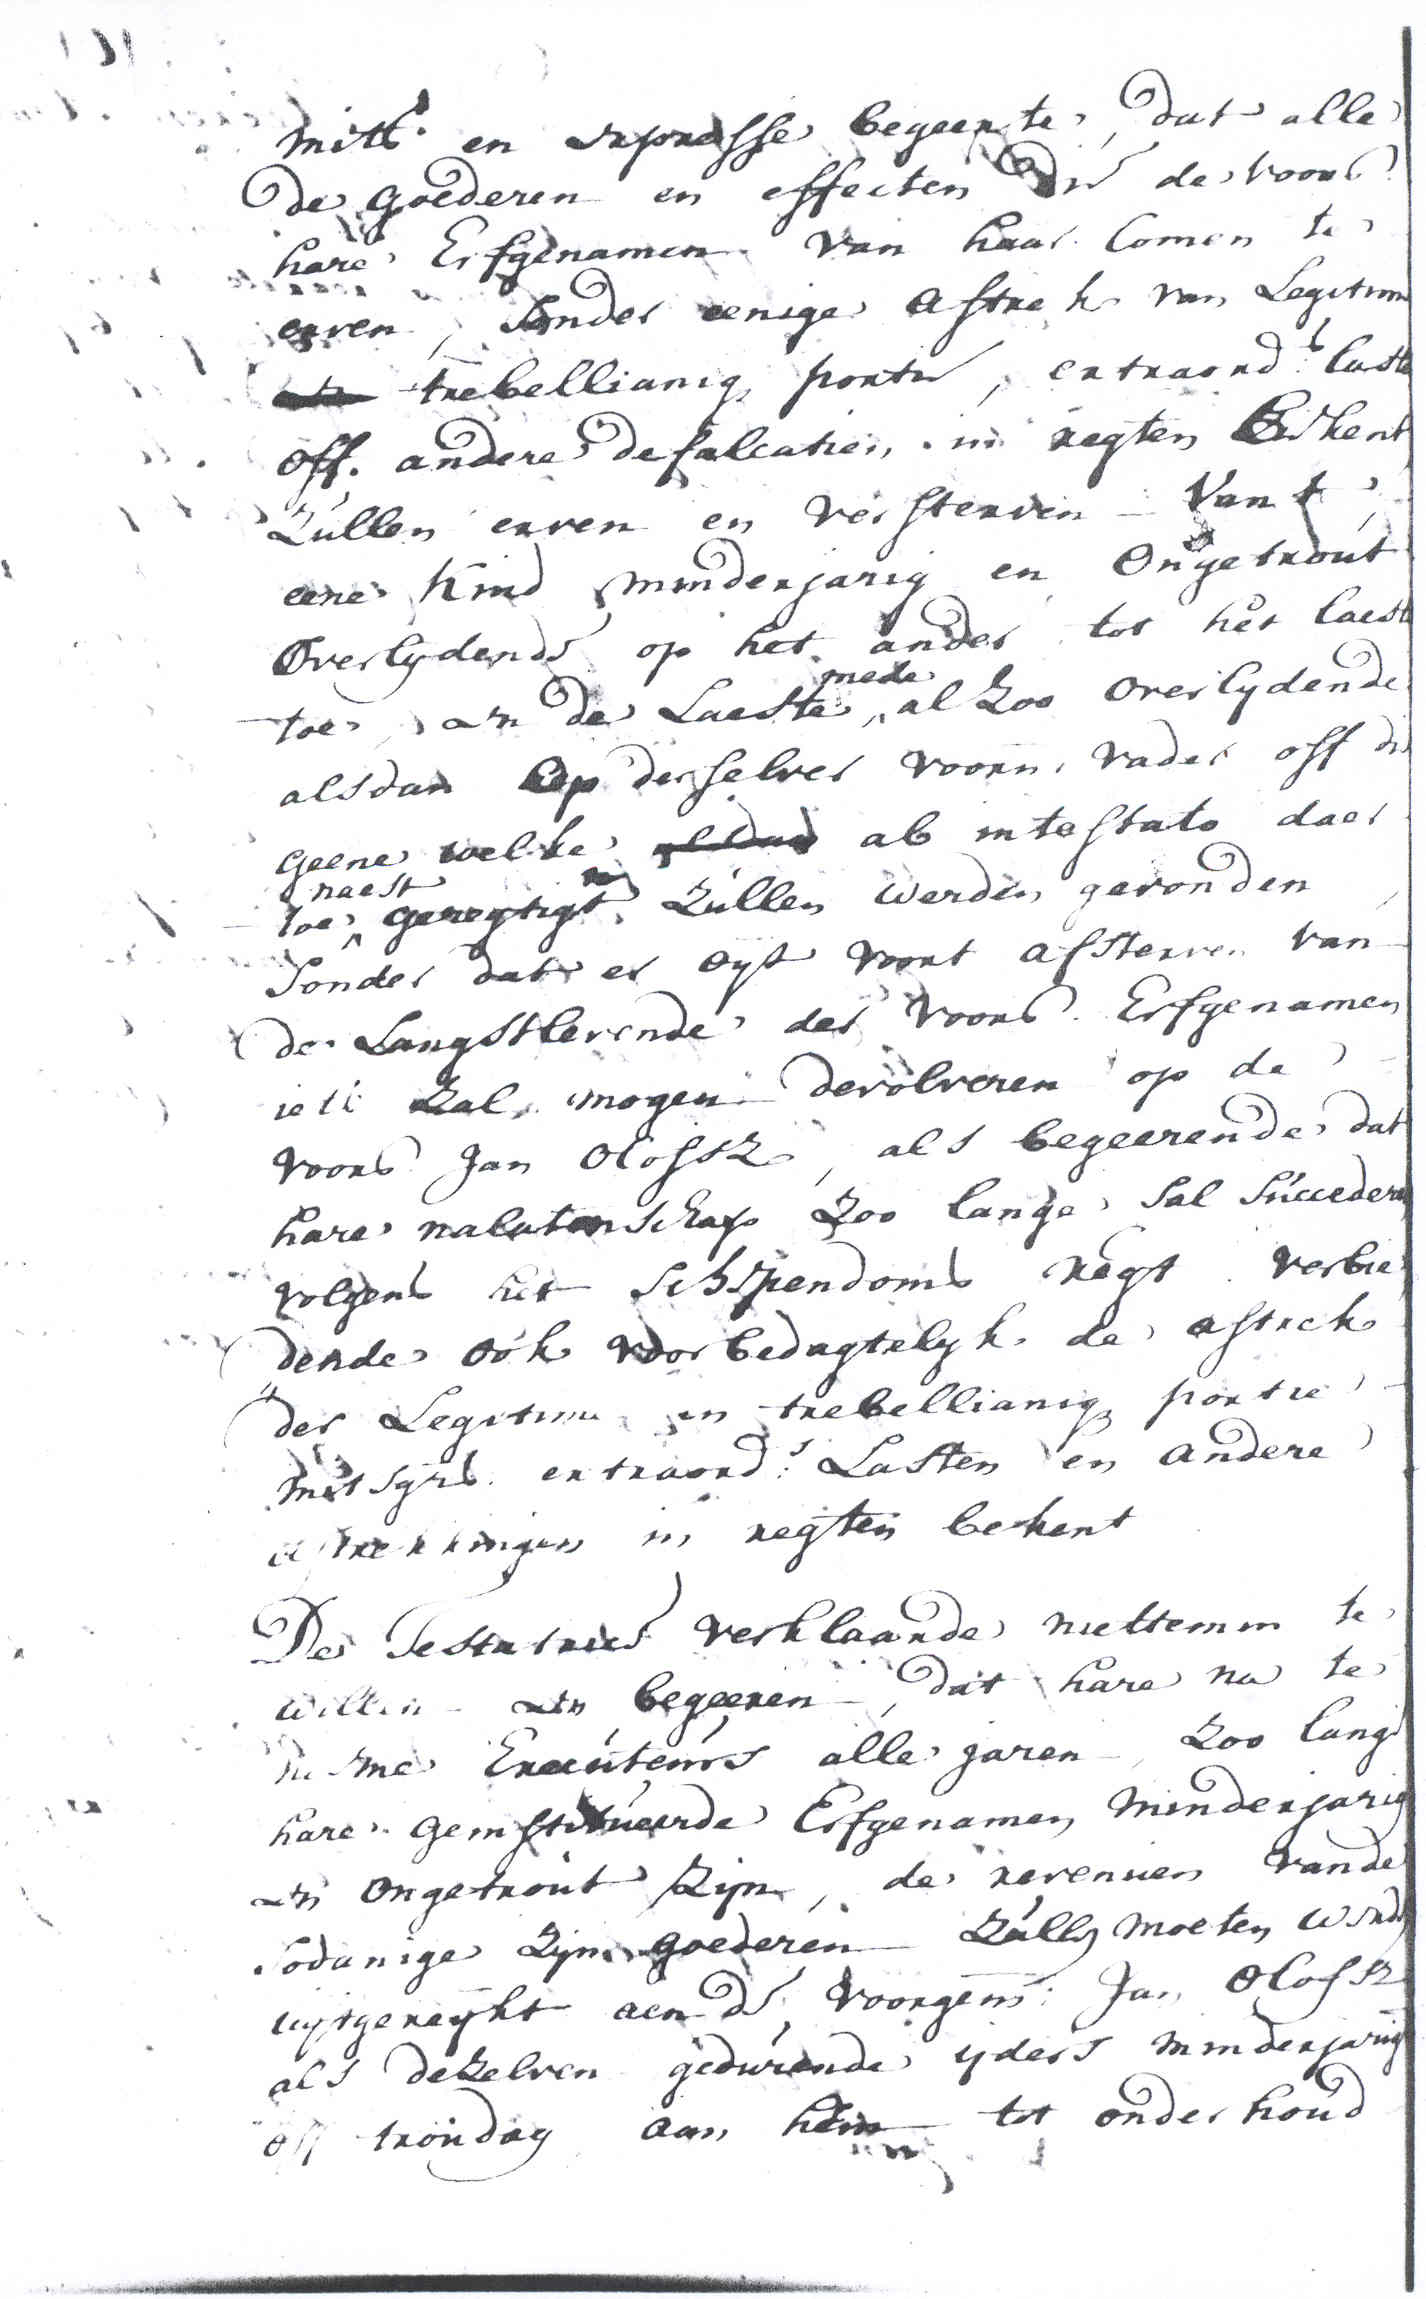 mitts en expresse begeerte, dat alle
de goederen en effecten die de voors.
hare Erfgenamen van haar comen te
erven, sonder eenige aftrek van Legitime
trebellianiq portie, extraord.s laste
off andere defalcatien, in regten bekent
Zullen erven en versterven van t'
eene Kind minderjarig en Ongetrout
Overlydende op het ander tot het laeste
toe, en de Laeste, mede al Zoo overlydende
alsdan op desselves voorn. vader off die
geene welke alsdan ab intestato daer
toe naest geregtigt Zullen werden gevonden,
Sonder dat er oyt voort afsterven van
de Langstlevende der voors. Erfgenamen
iets Zal mogen devolveren op de
voors. Jan Olofsz, als begeerende dat
hare nalatenschap Zoo lange sal Succederen
volgens het Schependoms regt verbie
dende ook voorbedagtelyk de aftrek
der Legitime en trebellianiq portie
mitsgrs. extraord.s Lasten en andere
aftrekkingen in regten bekent
De Testatrice verklaarde niettemin te
willen en begeeren, dat hare na te
noeme Executeurs alle jaren, Zoo lang
hare geinstitueerde Erfgenamen minderjarig
en ongetrout Zijn, de revenuen vande
sodanige Zyne goederen Zulln moeten werdn
uytgereykt aen de voorgem: Jan Olofsz
als dezelven gedurende yders minderjarig
off troudag aan hem tot onderhoud